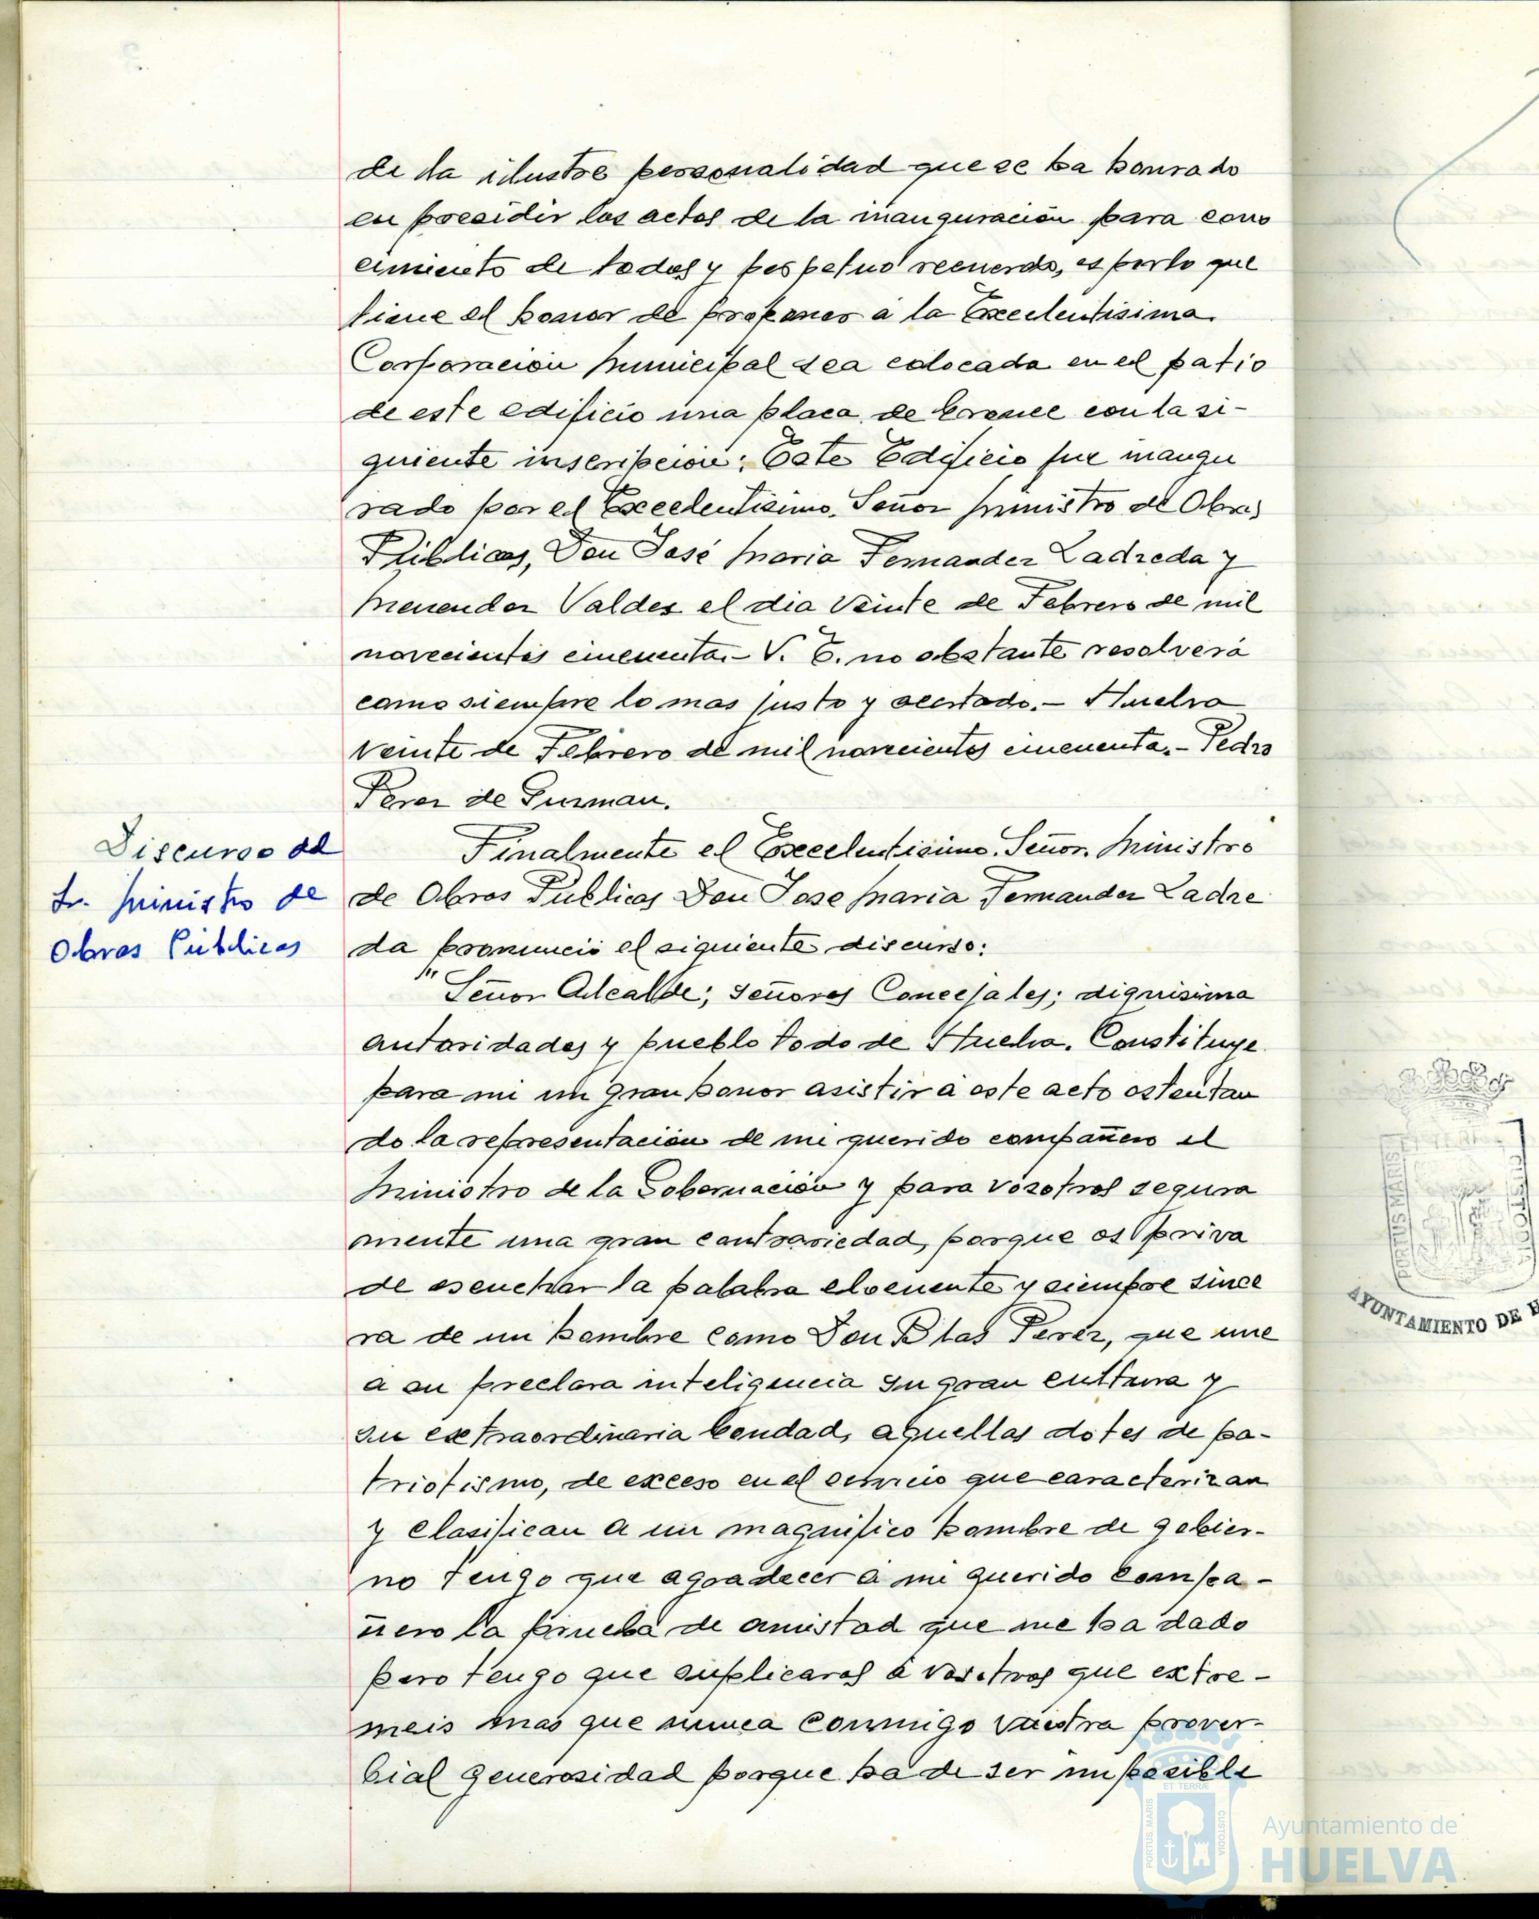 de la ilustre personalidad que se ha honrado
en presidir los actos de la inauguración para cono
cimiento de todos y perpetuo recuerdo, es por lo que
tiene el honor de proponer á la Excelentísima
Corporación Municipal sea colocada en el patio
de este edificio una placa de bronce con la si-
guiente inscripción: Este Edificio fue inaugu
rado por el Excelentísimo Señor Ministro de Obras
Públicas, Don José Maria Fernandez Ladreda y
Menendez Valdes el dia veinte de Febrero de mil
novecientos cincuenta.- V. E. no obstante resolverá
como siempre lo mas justo y acertado.- Huelva
veinte de Febrero de mil novecientos cincuenta.- Pedro
Perez de Guzman.
Discurso del
Sr. Ministro de
Obras Públicas
Finalmente el Excelentísimo Señor Ministro
de Obras Públicas Don Jose Maria Fernandez Ladre
da pronunció el siguiente discurso:
"Señor Alcalde; señores Concejales; dignisima
autoridades y pueblo todo de Huelva. Constituye
para mi un gran honor asistir á este acto ostentan
do la representación de mi querido compañero el
Ministro de la Gobernación y para vosotros segura
mente una gran contrariedad, porque os priva
de escuchar la palabra elocuente y siempre since
ra de un hombre como Don Blas Perez, que une
a su preclara inteligencia su gran cultura y
su extraordinaria bondad, aquellas dotes de pa-
triotismo, de exceso en el servicio que caracterizan
y clasifican a un magnifico hombre de gobier-
no tengo que agradecer á mi querido compa-
ñero la prueba de amistad que me ha dado
pero tengo que suplicaros á vosotros que extre-
meis mas que nunca conmigo vuestra prover-
bial generosidad porque ha de ser imposible
PORTUS MARIS
AYUNTAMIENTO DE H
PORTUS MARIS ET TERRÆ CUSTODIA
Ayuntamiento de
HUELVA